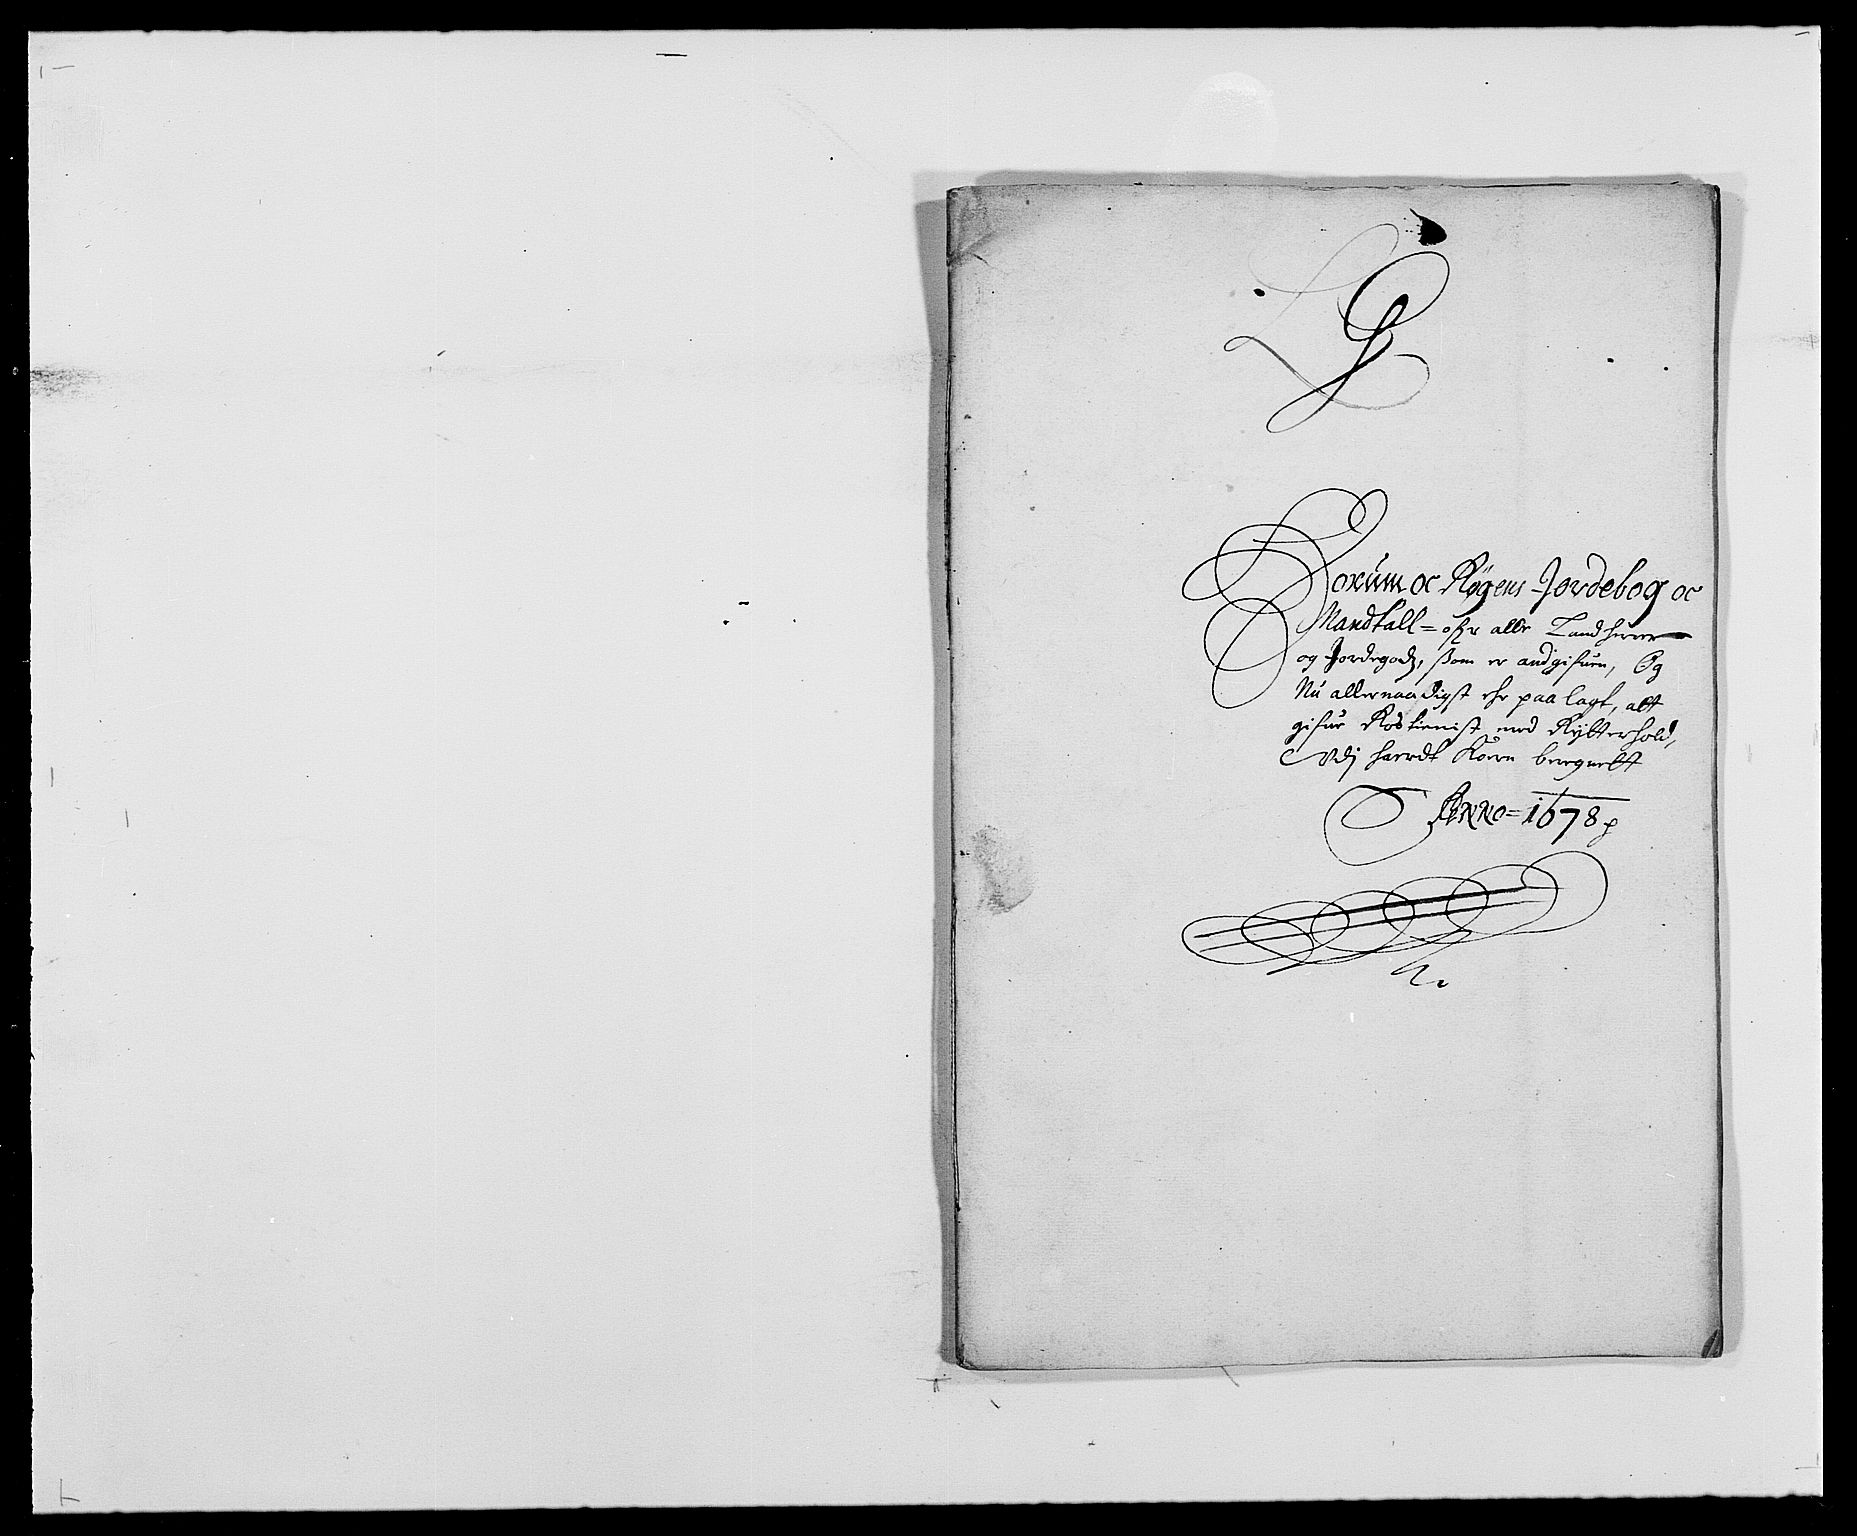 Horum oc Røgens Jordebog oc
Mandtall = ofr alle Landherrer
og Jordegods, som er andgifuen, Og
Nu allernaadigst ehr paa lagt, att
gifue Rostienist med Rytterhold,
Vdj haerdt Koern beregnett
ANNO = 1678